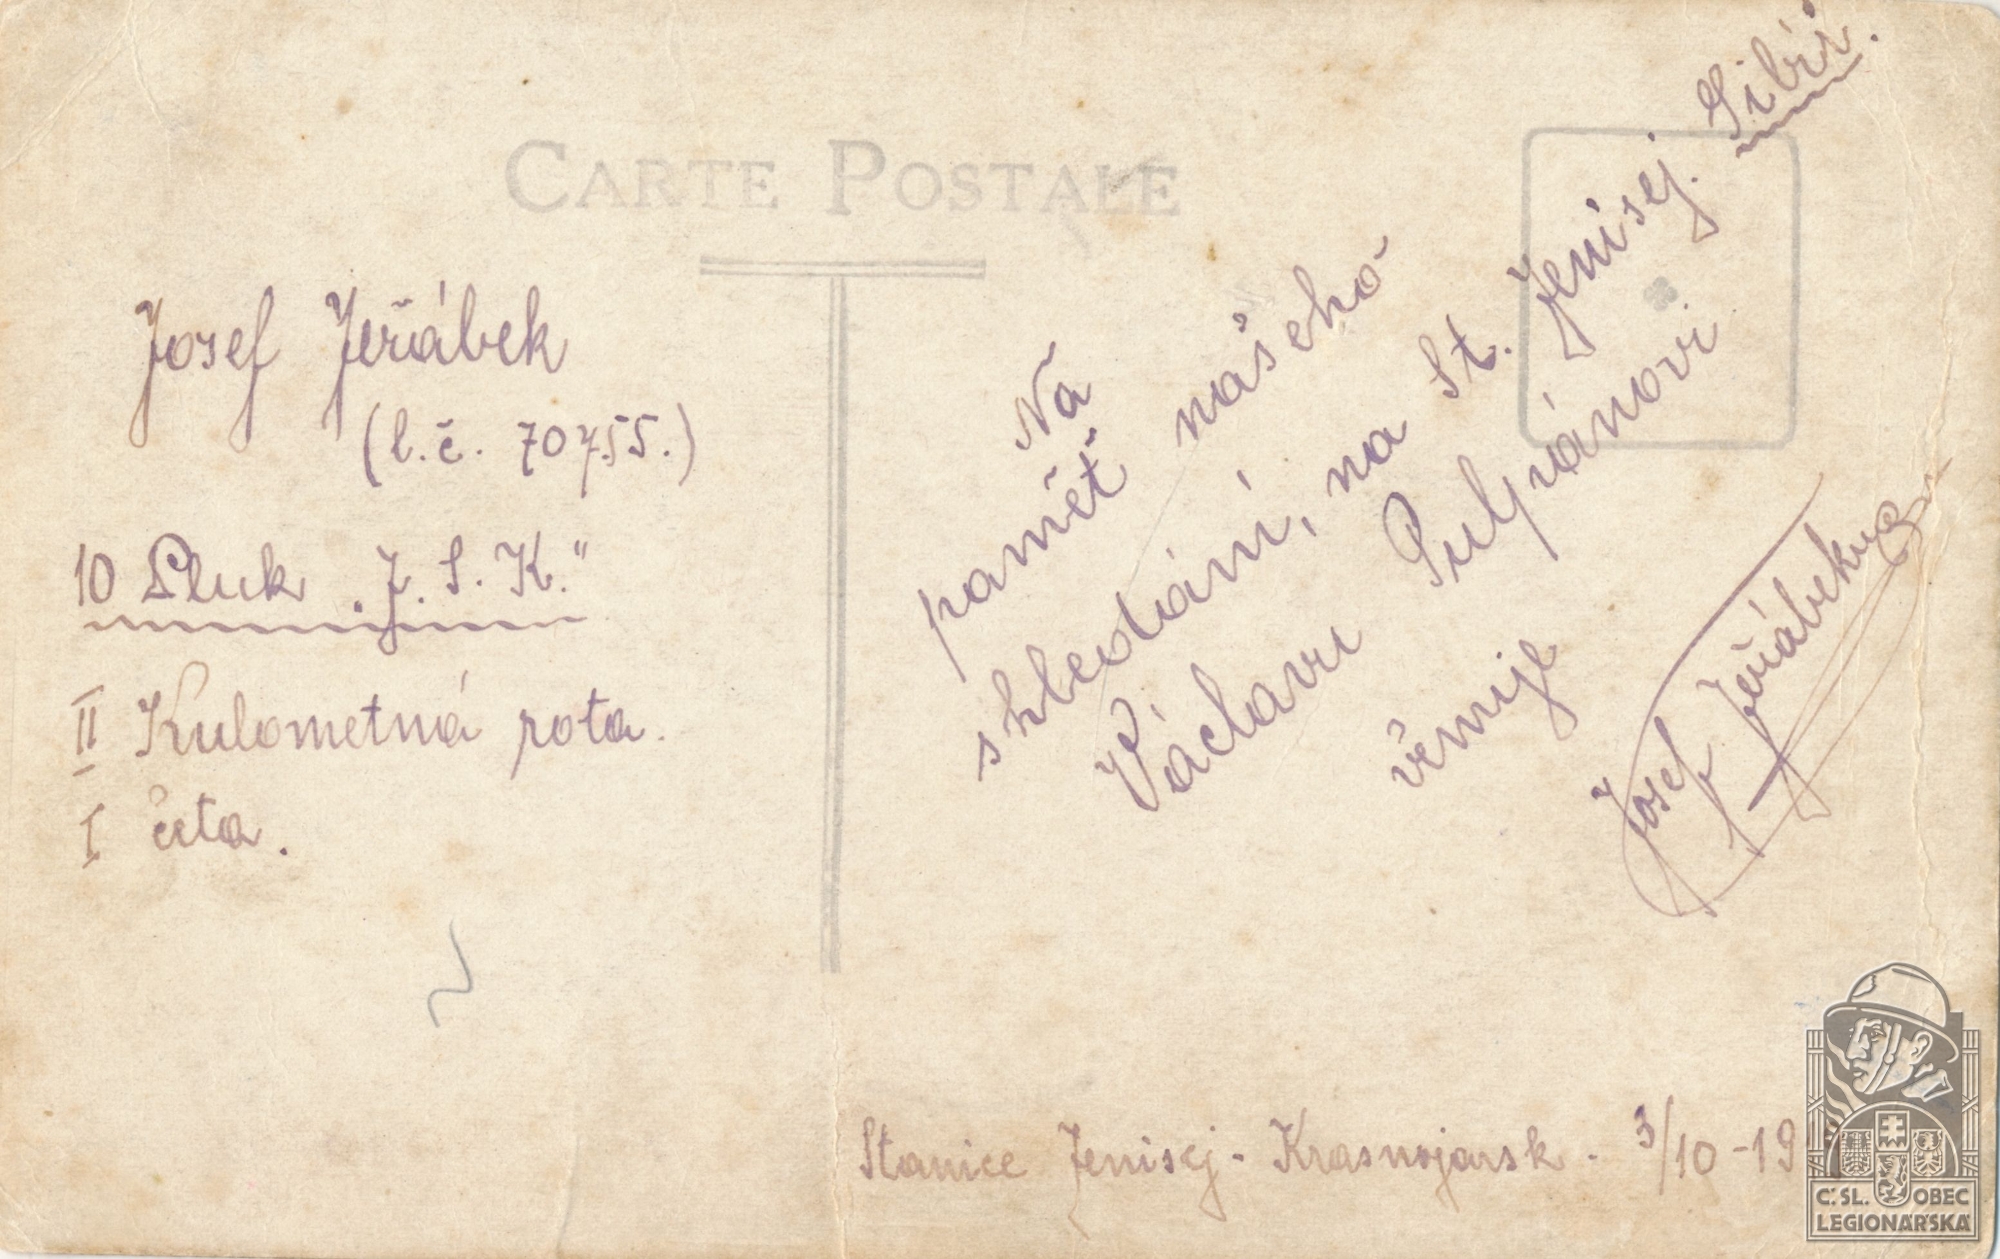 CARTE POSTALE
Josef Jeřábek
(l.č. 70755.)
10 Pluk „J. S. K."
II Kulometná rota.
I četa.
Na
paměť našeho
shledání, na St. Jenisej. Sibiř.
Václavu Pulpánovi
věnuje
Josef Jeřábek
Stanice Jenisej - Krasnojarsk. 3/10 - 19
Č. SL. OBEC
LEGIONÁŘSKÁ